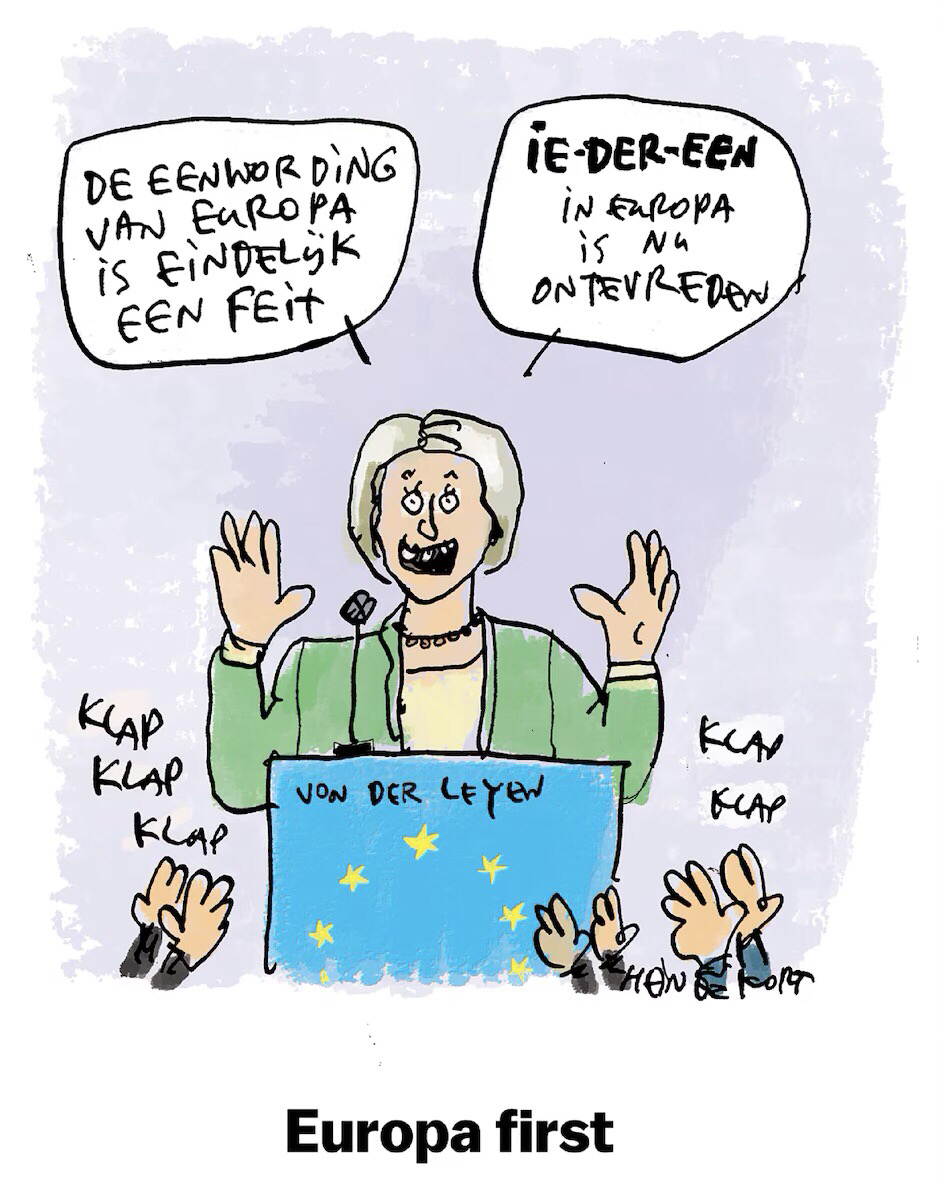 DE EENWORDING
VAN EUROPA
IS EINDELIJK
EEN FEIT
IE-DER-EEN
IN EUROPA
IS NU
ONTEVREDEN
KLAP
KLAP
KLAP
KLAP
KLAP
VON DER LEYEN
HEIN DE KORT
Europa first